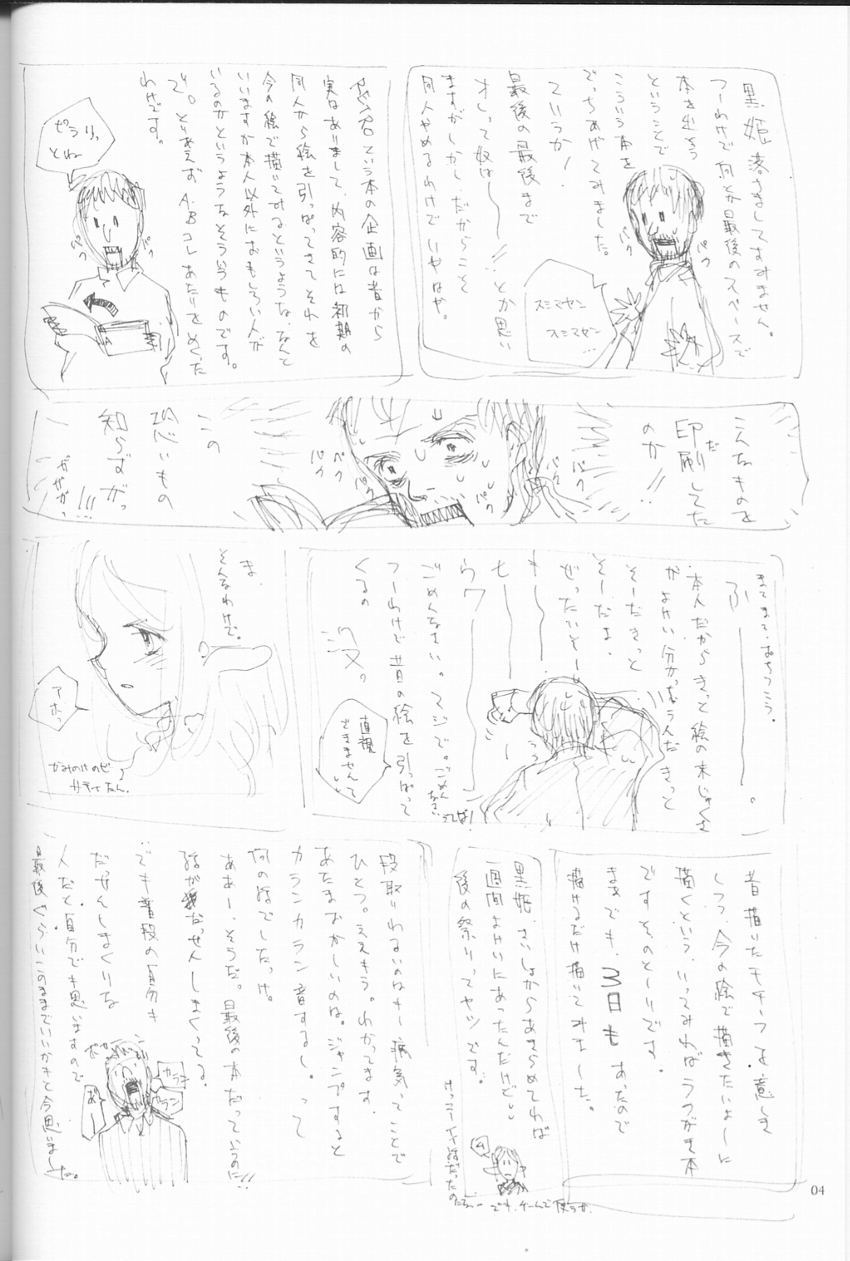 黒姫落ちましてすみません。
つーわけで何とか最後のスペースで
本を出そう
ということで
こういう本を
でっちあげてみました。
ていうか!
最後の最後まで
オレって奴は——!!とか思い
ますがしかし、だからこそ
同人やめるわけで いやはや。
スミマセン
スミマセン
…
パク
パク
という本の企画は昔から
実はありまして、内容的には初期の
同人から絵を引っぱってきてそれを
今の絵で描いてみるというような、なんと
いいますか本人以外におもしろい人が
いるのかというようなそういうものです。
で。とりあえず A.Bコレあたりをめくった
わけです。
ピラリっ
とねー
パク
パク
A
こんなものを
印刷してた
だ
のか!!
パク
パク
パク
パク
パク
この
恐いもの
知らずがっ
!!!
まてまて、おちつこう。
ふ———。
本人だからきっと絵の末じゅくさ
がよけい分かっちゃうんだ きっと
そーだきっと
そーだよ.
ぜったいそー
も——
ごめんなさい。マジで。ごめん
なさい
つーわけで昔の絵を引っぱって
くるの
没っ
直視
できませんて
ま、
そんなわけで。
アホっ
かみのけのピ
サティたん。
昔描いたモチーフを意しき
しつつ、今の絵で描きたいよーに
描くという、いってみればラクガキ本
です そのとーりです。
まあでも、3日も あったので
描けるだけ描いてみました。
黒姫、さいしょからあきらめてれば
一週間よけいにあったんだけど。
後の祭りってヤツです。
でも、ゲームで使うか.
段取りわるいのはもー病気ってことで
ひとつ。ええもう。わかってます.
あたまおかしいのは。ジャンプすると
カランカラン音するし。って
何の話でしたっけ。
ああー、そうだ。最後の本だっていうのに!!
話がだっせんしまくってる。
でも普段の自分も
だっせんしまくりな
人だと自分でも思いますので
最後ぐらいこのままでいいかもと今思いました。
カラン
カラン
あー
04